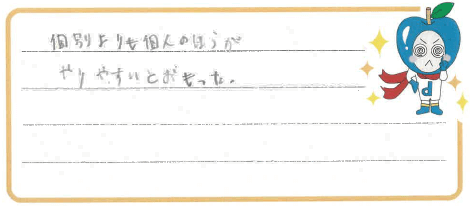 個別よりも個人のほうが
やりやすいとおもった。
d